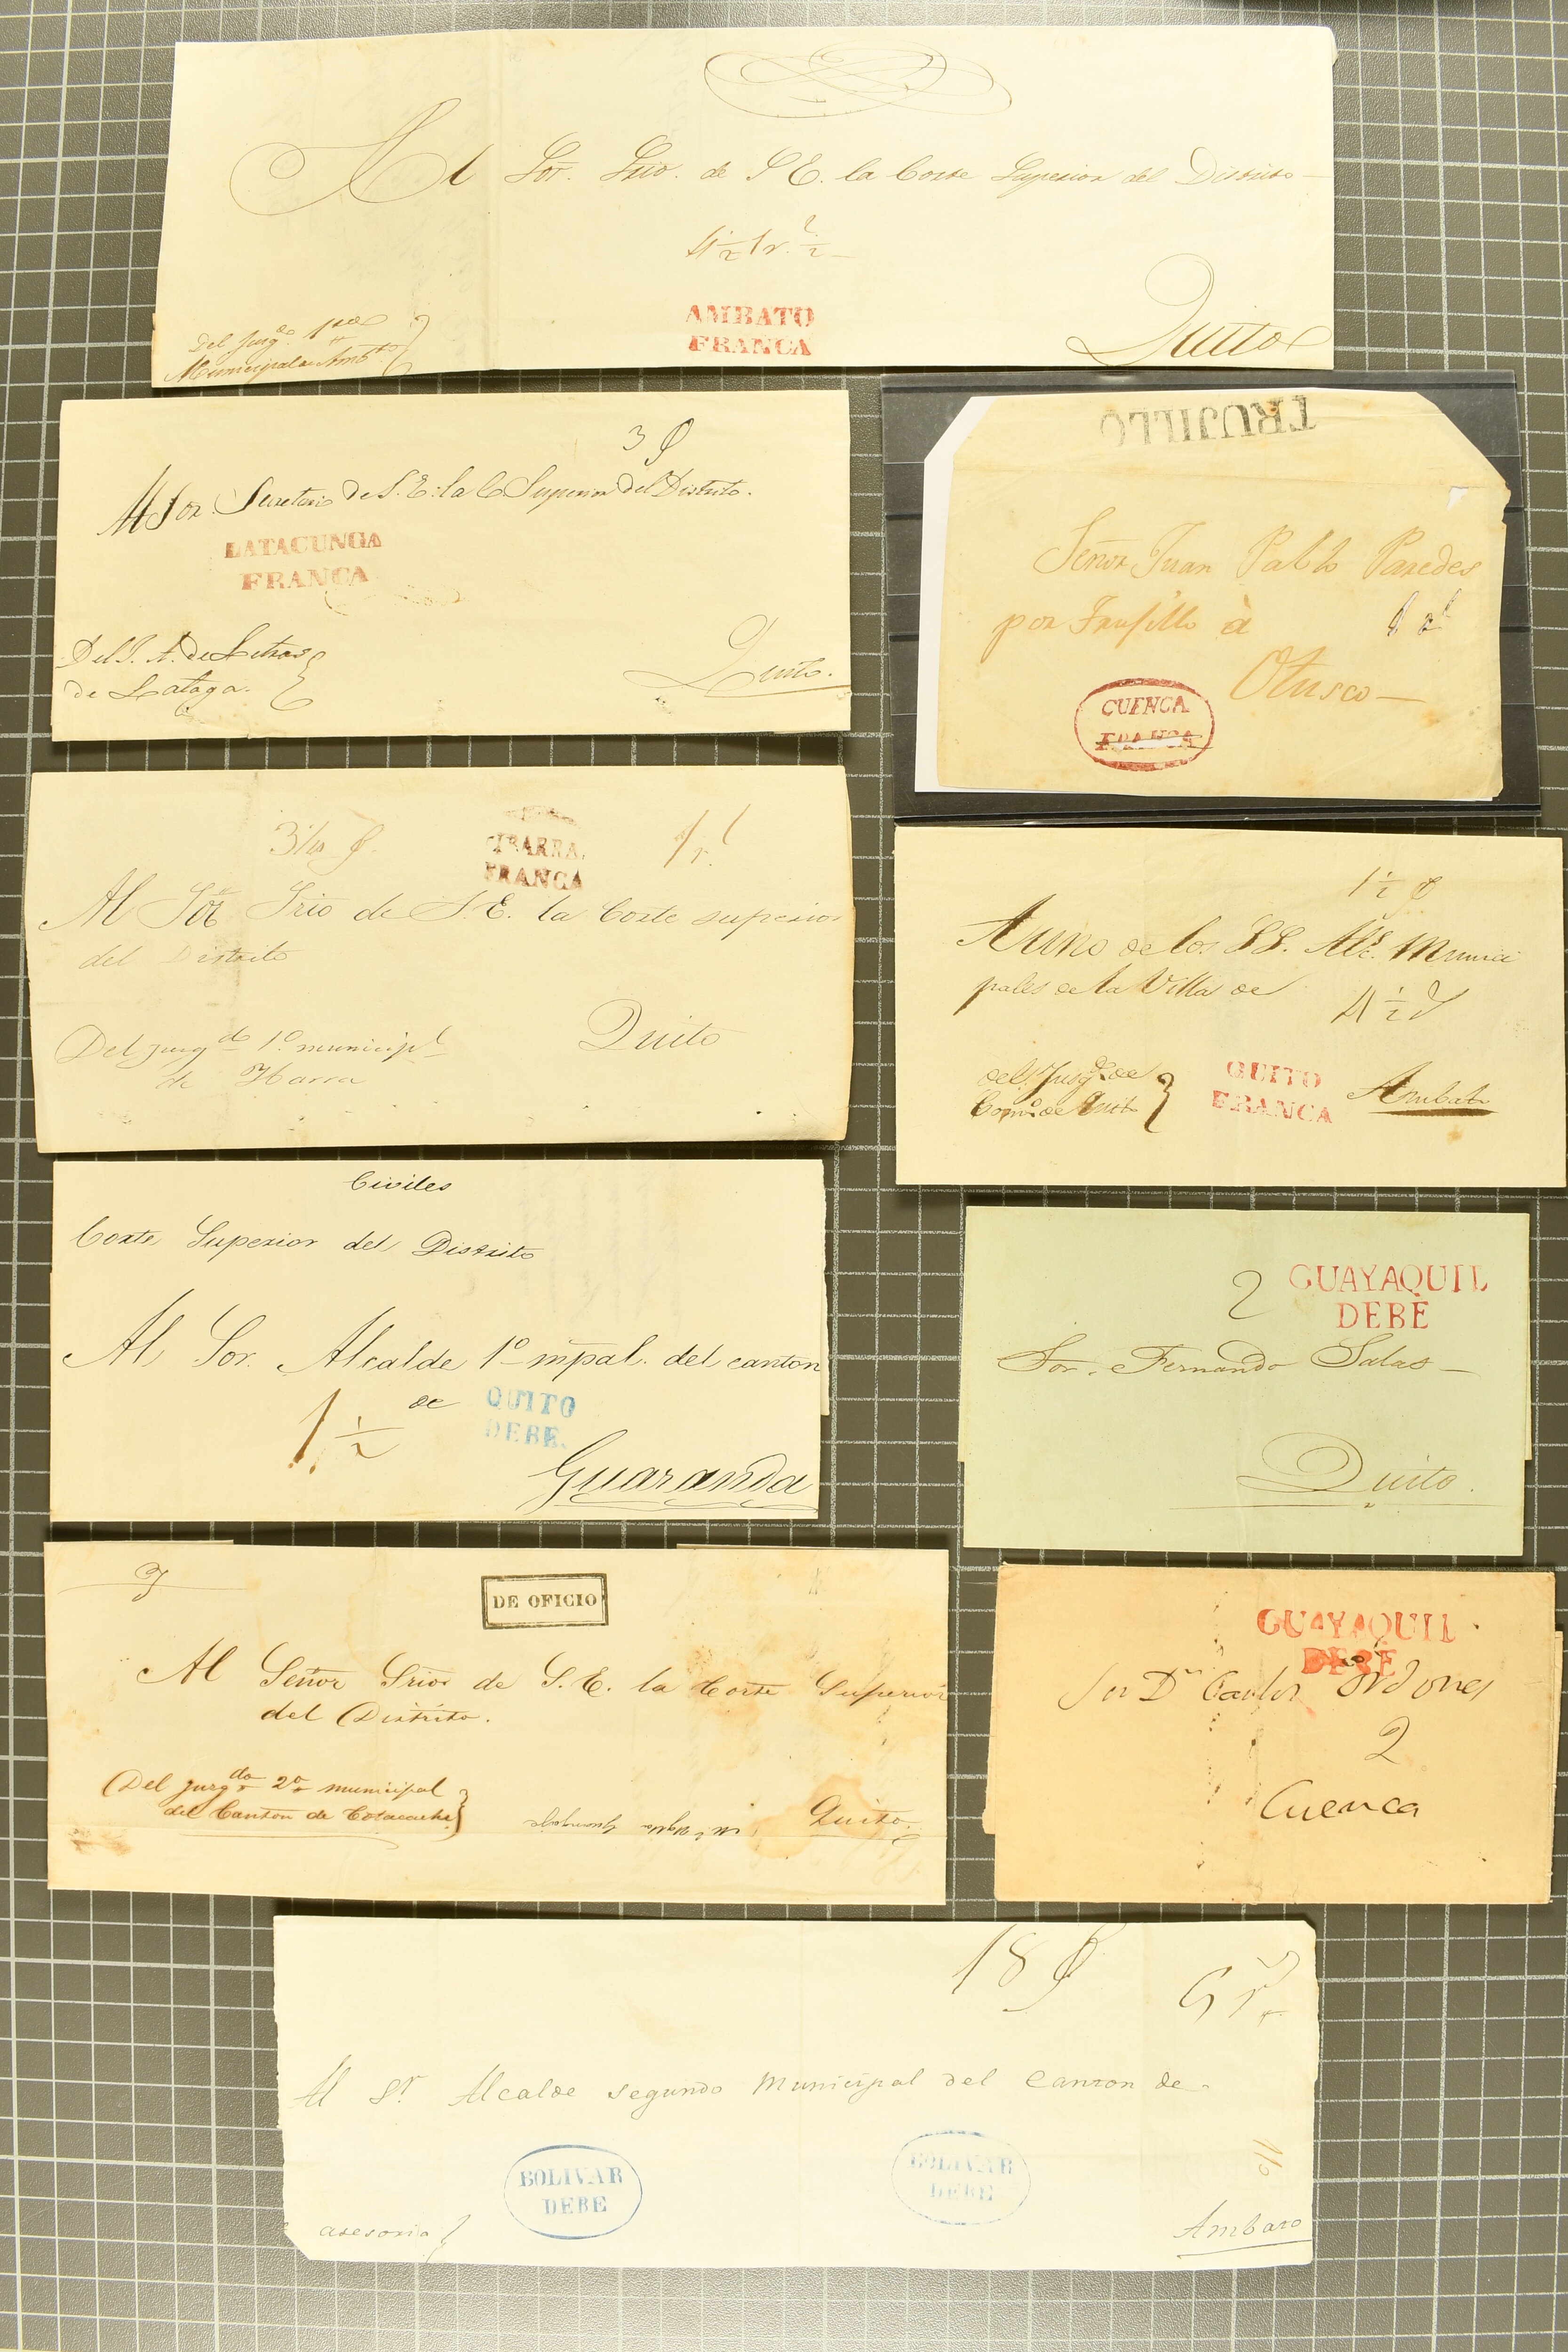 Al Sor. Srio. de S E. la Corte Superior del Distrito
4½ 1r.
AMBATO
FRANCA
Del Juzgdo. 1ro
Municipal de Ambto
Quito
3
Al Sor. Secretario de S. E. la C Superior del Distrito.
LATACUNGA
FRANCA
Del J. de Letras
de Lataga.
Quito.
TRUJILLO
Señor Juan Pablo Paredes
por Trujillo à
Otusco
CUENCA
FRANCA
1r.
IBARRA.
FRANCA
Al Sór Srio de S. E. la Corte superior
del Distrito
Del juzgdo 1º municipl
de Ibarra
Quito
1½
A uno de los SS. Alc.s Munici
pales de la Villa de
4½
del Jusgdo de
Quito
QUITO
FRANCA
Ambato
Civiles
Corte Superior del Distrito
Al Sor. Alcalde 1º mpal. del canton
de
1½
QUITO
DEBE.
Guaranda
2
GUAYAQUIL
DEBE
Sor. Fernando Salas
Quito.
DE OFICIO
Al Señor Srio de S. E. la Corte Superior
del Distrito.
Del juzgdo 2º municipal
del Canton de Cotacachi
Quito.
GUAYAQUIL
DEBE
Sor Dn Carlos Ordoñez
2
Cuenca
18
Al Sr. Alcalde segundo Municipal del Canton de
BOLIVAR
DEBE
BOLIVAR
DEBE
asesoria
Ambato